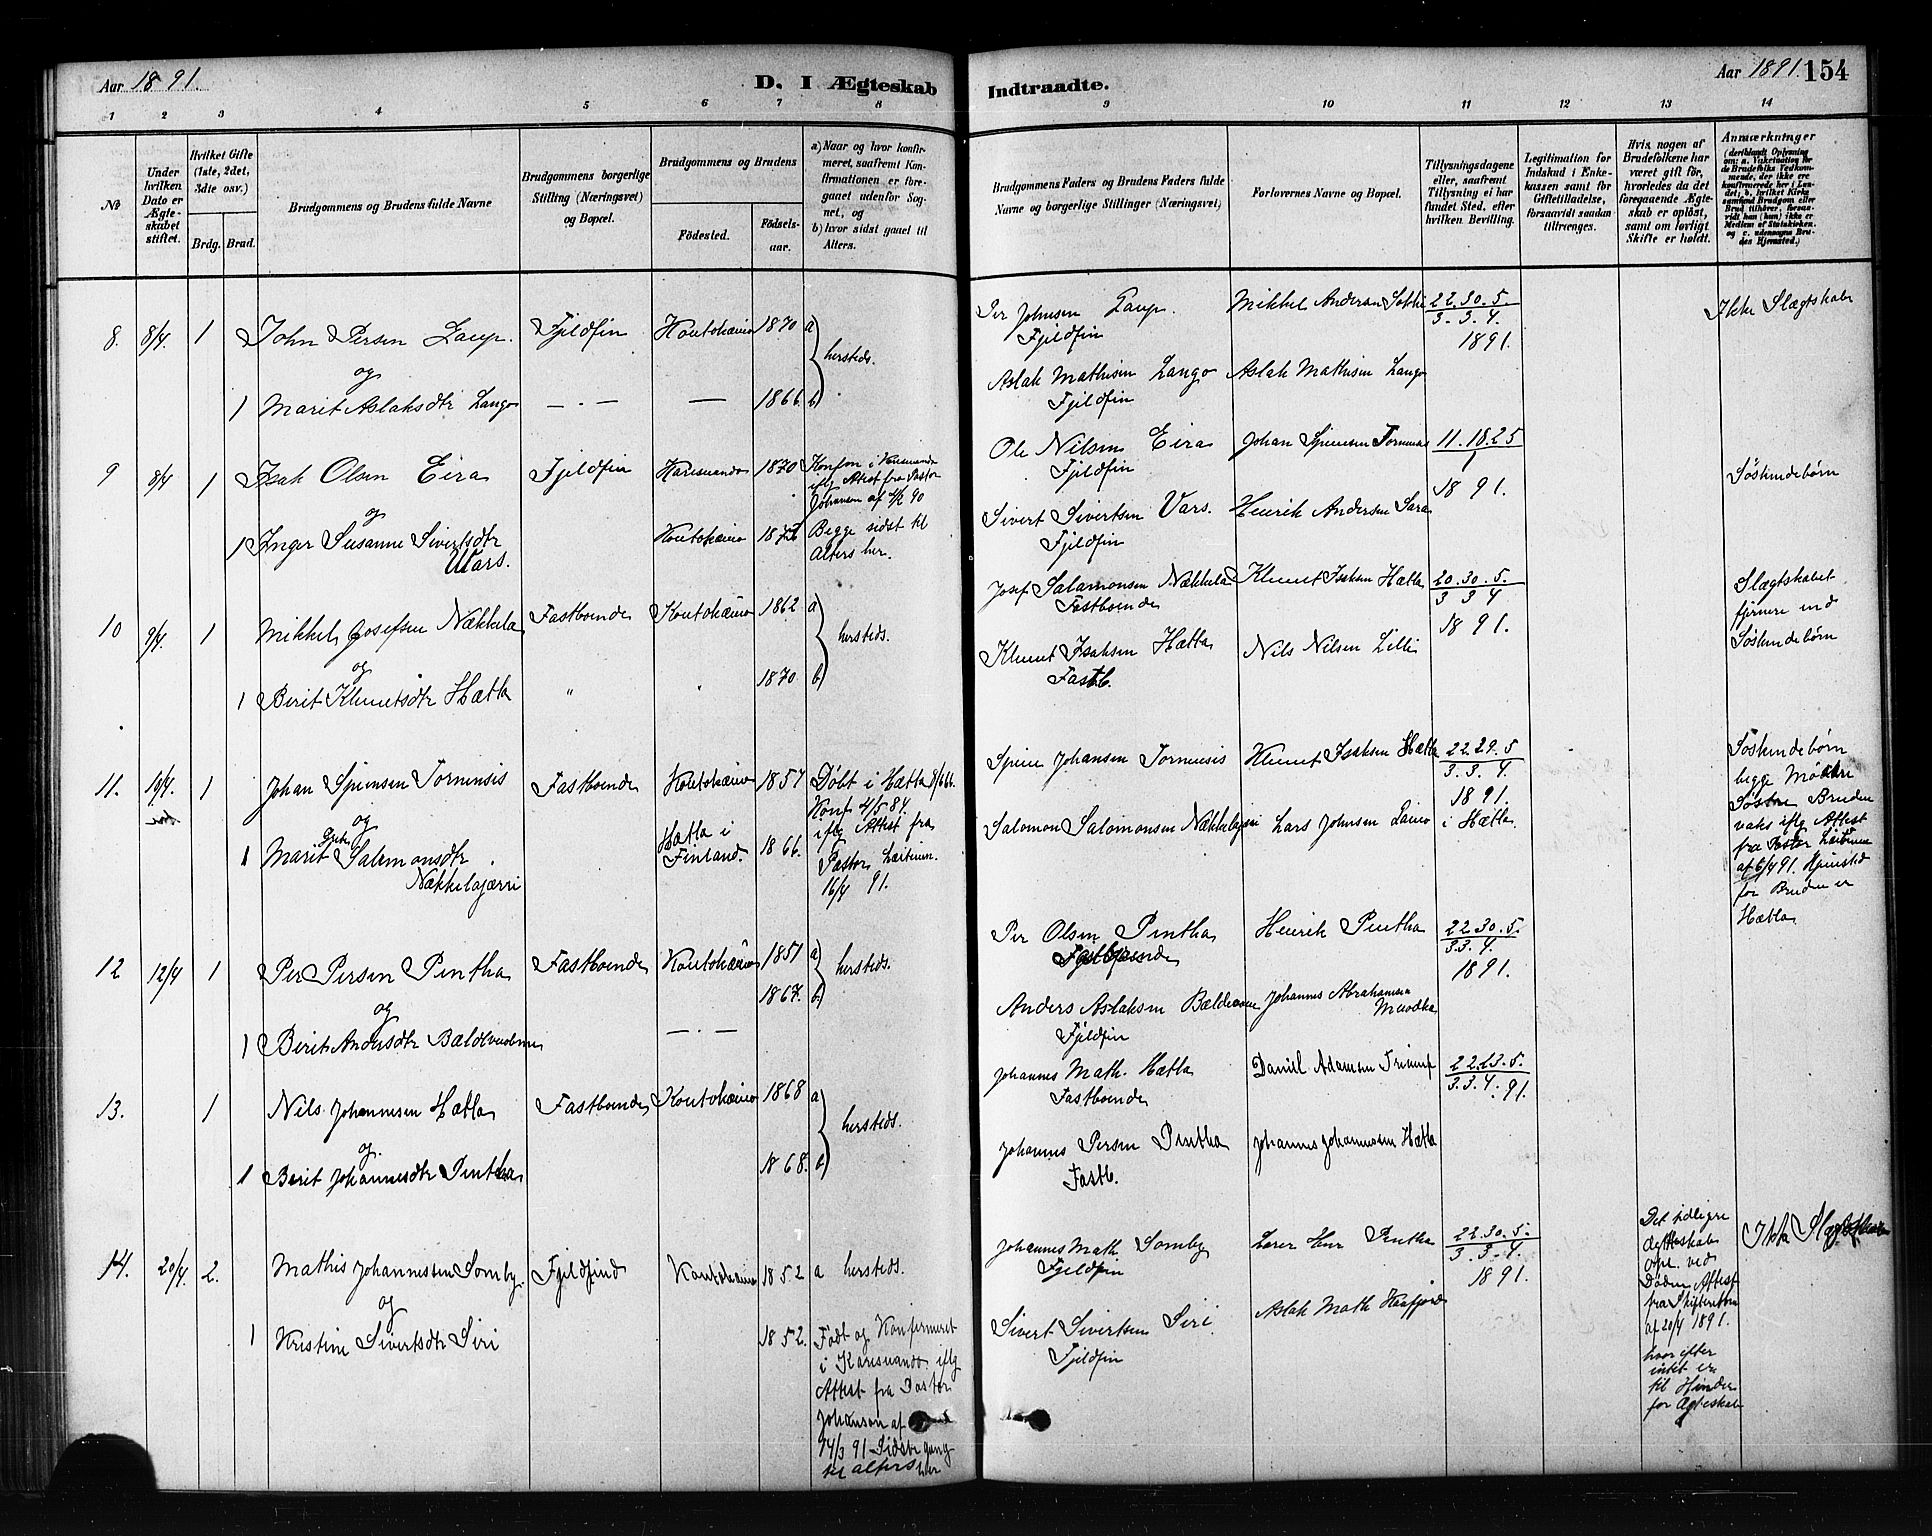 Aar 1891.
D. I Ægteskab
Indtraadte.
Aar 1891.
154
1 2 3 4 5 6 7 8 9 10 11 12 13 14
No
Under hvilken Dato er Ægteskabet stiftet.
Hvilket Gifte (1ste, 2det, 3die osv.)
Brdg. Brud.
Brudgommens og Brudens fulde Navne
Brudgommens borgerlige Stilling (Næringsvei) og Bopæl.
Brudgommens og Brudens
Fødested.
Fødselsaar.
a) Naar og hvor konfirmeret, saafremt Konfirmationen er foregaaet udenfor Sognet, og
b) hvor sidst gaaet til Alters.
Brudgommens Faders og Brudens Faders fulde Navne og borgerlige Stillinger (Næringsvei)
Forlovernes Navne og Bopæl.
Tillysningsdagene eller, saafremt Tillysning ei har fundet Sted, efter hvilken Bevilling.
Legitimation for Indskud i Enkekassen samt for Giftetilladelse, forsaavidt saadan tiltrænges.
Hvis nogen af Brudefolkene har været gift før, hvorledes da det foregaaende Ægteskab er opløst, samt om lovligt Skifte er holdt.
Anmærkninger
(deriblandt Oplysning om: a. Vaksination for de Brudefolks Vedkommende, der ikke er konfirmerede her i Landet; b. hvilket Kirkesamfund Brudgom eller Brud tilhører, forsaavidt han (hun) ikke er Medlem af Statskirken, og c. udensogns Brudes Hjemsted.)
8. 8/4. 1 John Persen Gaup. Fjeldfin Koutokæino 1870 a
og
1 Marit Aslaksdtr Lango — . — — 1866. b) hersteds.
Per Johnsen Gaup.
Fjeldfin
Aslak Mathisen Lango
Fjeldfin
Mikkel Andersen
Aslak Mathisen Lango
22.30.5.
3.3.4.
1891.
Ikke Slægtskabe
9 8/4 1 Isak Olsen Eira Fjeldfin Karesuando 1870
Attest fra Pastor
Johansen af
og
1 Inger Susanne Sivertsdtr
Vars.
Koutokæino
Begge sidst til
Alters her.
Ole Nilsen Eira
Fjeldfin
Sivert Sivertsen Vars.
Fjeldfin
Johan Spiensen Tornensis
Henrik Andersen Sara
11.18.25
1
1891.
Søskendebørn
10 9/4. 1 Mikkel Josefsen Nækkela Fastboende Koutokæino 1862 a
og
1 Berit Klemetsdtr Hætta " 1870 b) hersteds.
Josef Salamonsen Nækkela
Fastboende
Klemet Isaksen Hætta
Fastb.
Klemet Isaksen Hætta
Nils Nilsen Lilli
20.30.5.
3 3 4
1891.
Slægtskabet
fjernere end
Søskendebørn
11. 10/4. 1 Johan Spiensen Tornensis Fastboende Koutokæino 1857
og
1 Marit Salomonsdtr
Nækkelajærvi
Hætta i
Finland.
1866.
Døbt i Hætta
Konf. 4/5 84.
iflg Attest fra
Pastor
16/4 91.
Spein Johansen Tornensis
Salomon Salomonsen Nækkelajærvi
Klemet Isaksen Hætta
Lars Johnsen i Hætta.
22.29.5
3.3.4.
1891.
Søskendebørn
begge Mødre
Søstre Bruden
vaks iflg Attest
fra Pastor
af 6/4 91. Hjemsted
for Bruden er
Hætta
12 12/4 1 Per Persen Pentha Fastboende Koutokæino 1851 a
og
1867. b) hersteds.
1 Berit Andersdtr Bældevuobme — . —
Per Olsen Pentha
Anders Aslaksen
Fjeldfin
Henrik Pentha
Johannes Abrahamsen
22.30.5.
3.3.4.
1891.
13. 1 Nils Johannesen Hætta Fastboende Koutokæino 1868 a
og
1 Berit Johannesdtr Pentha 1868. b) hersteds.
Johannes Math. Hætta
Fastboende
Johannes Persen Pentha
Fastb.
Daniel Adamsen Triumf
Johannes Johannessen Hætta
3.3.4.91.
14. 20/4. 2. Mathis Johannessen Somby Fjeldfind Koutokæino 1852 a hersteds.
og
1 Kristine Sivertsdtr Siri 1852.
Født og Konfirmeret
i Karesuando iflg
Attest fra Pastor
Johanson af
14/3 91 Sidste gang
til alters her
Johannes Math Somby
Fjeldfin
Sivert Sivertsen Siri.
Fjeldfin
Aslak Math Kaafjord
22.30.5.
3.3.4.
1891.
Det tidligre
Ægteskabe
opl. ved
Døden Attest
fra Skifteretten
af 20/4 1891.
hvorefter
intet er
til Hinder
for Ægteskab
Ikke Slægtskabe